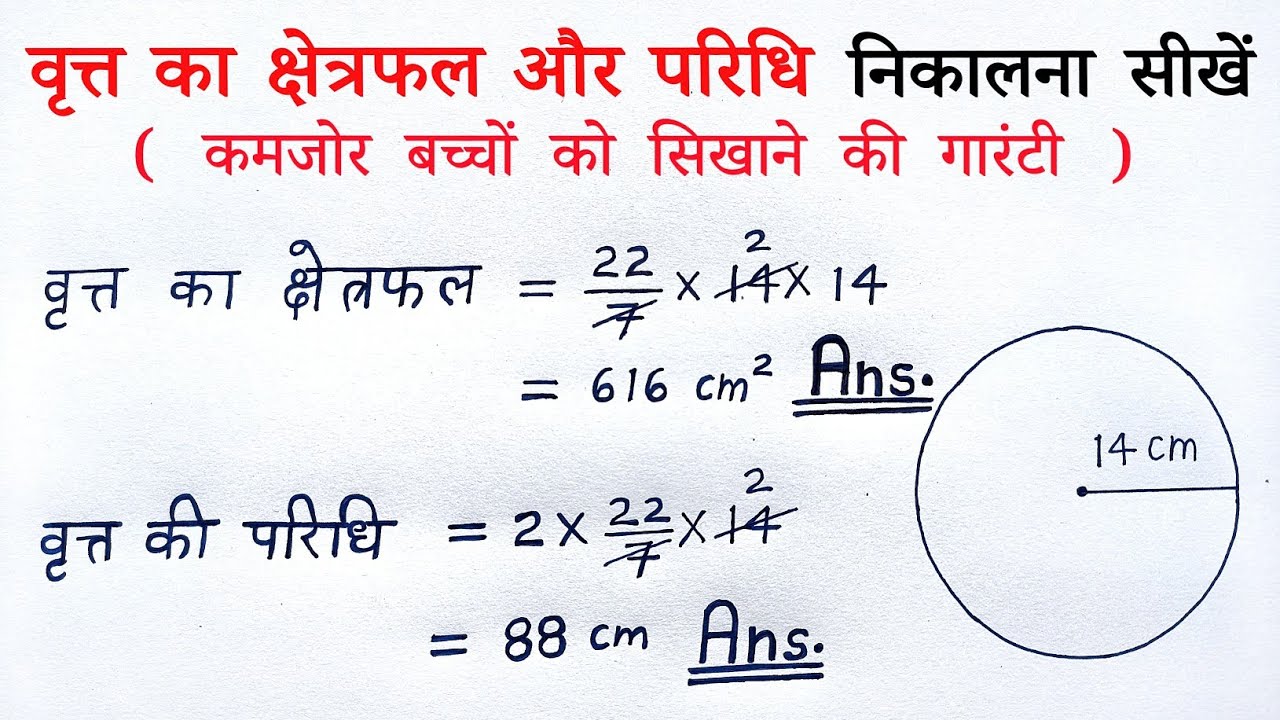 वृत्त का क्षेत्रफल और परिधि निकालना सीखें
( कमजोर बच्चों को सिखाने की गारंटी )
वृत्त का क्षेत्रफल = 22/7 × 14 × 14
2
= 616 cm² Ans.
14 cm
वृत्त की परिधि = 2 × 22/7 × 14
2
= 88 cm Ans.